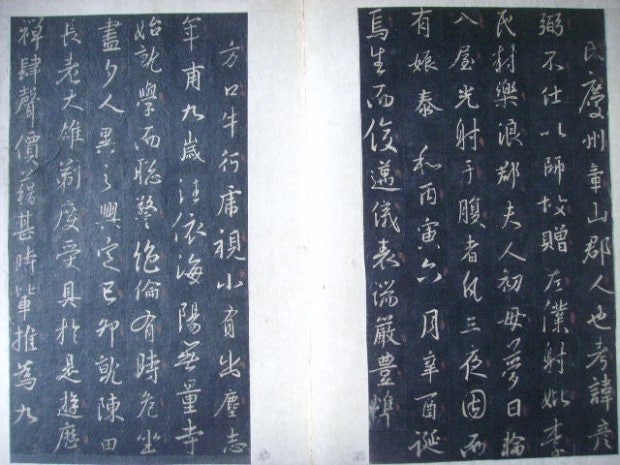 氏慶州章山郡人也考諱彥
弼不仕以師故贈左僕射妣李
氏封樂浪郡夫人初母夢日輪
入屋光射于腹者凡三夜因而
有娠泰和丙寅六月辛酉誕
焉生而俊邁儀表端嚴豊準
方口牛行虎視小有出塵志
年甫九歲往依海陽無量寺
始就學而聡警絶倫有時危坐
盡夕人異之興定己卯就陳田
長老大雄剃度受具於是遊歷
禪肆聲價藉甚時輩推為九